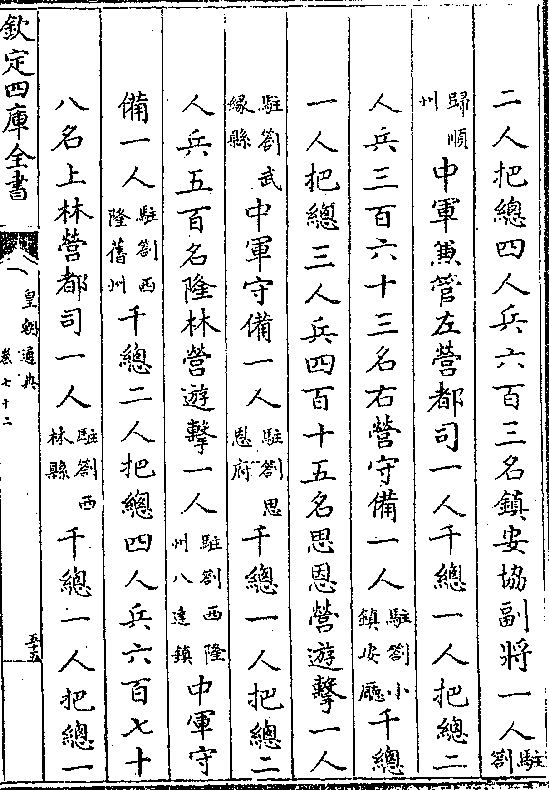 二人把總四人兵六百三名鎮安協副將一人駐劄
歸順州中軍兼管左營都司一人千總一人把總二
人兵三百六十三名右營守備一人駐劄小鎮安廳千總
一人把總三人兵四百十五名思恩營遊擊一人
駐劄武緣縣中軍守備一人駐劄思恩府千總一人把總二
人兵五百名隆林營遊擊一人駐劄西隆州八達鎮中軍守
備一人駐劄西隆舊州千總二人把總四人兵六百七十
八名上林營都司一人駐劄西林縣千總一人把總一
欽定四庫全書
皇朝通典
卷七十二